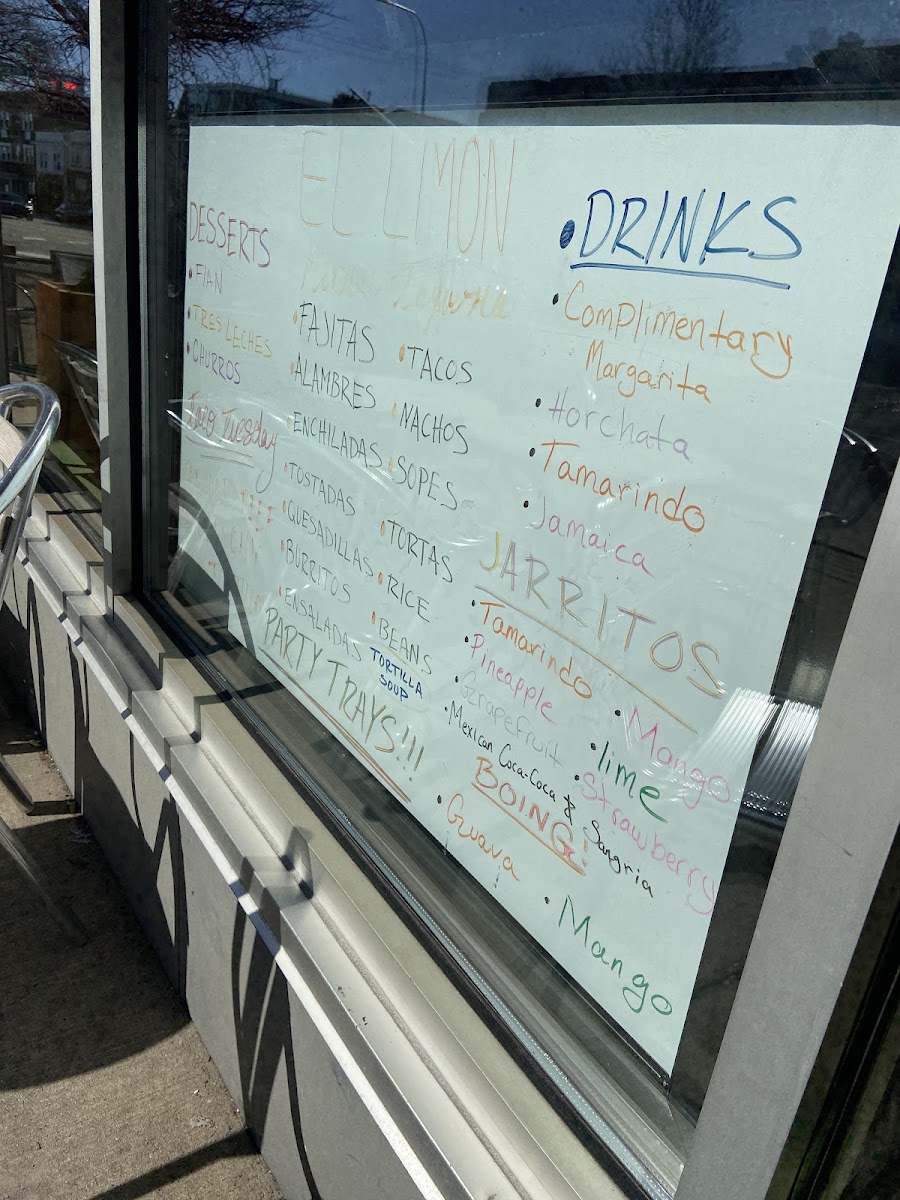 EL LIMON
DESSERTS
• FlAN
• TRES LECHES
• CHURROS
Tuesday
• FAJITAS
• ALAMBRES
• ENCHILADAS
• TOSTADAS
• QUESADILLAS
• BURRITOS
• ENSALADAS
• TACOS
• NACHOS
• SOPES
• TORTAS
• RICE
• BEANS
TORTILLA
SOUP
PARTY TRAYS!!!
• DRINKS
• Complimentary
Margarita
• Horchata
• Tamarindo
• Jamaica
JARRITOS
• Tamarindo
• Pineapple
• Grapefruit
• Mexican Coca-Coca & Sangria
• Mango
• lime
• Strawberry
BOING!
• Guava
• Mango